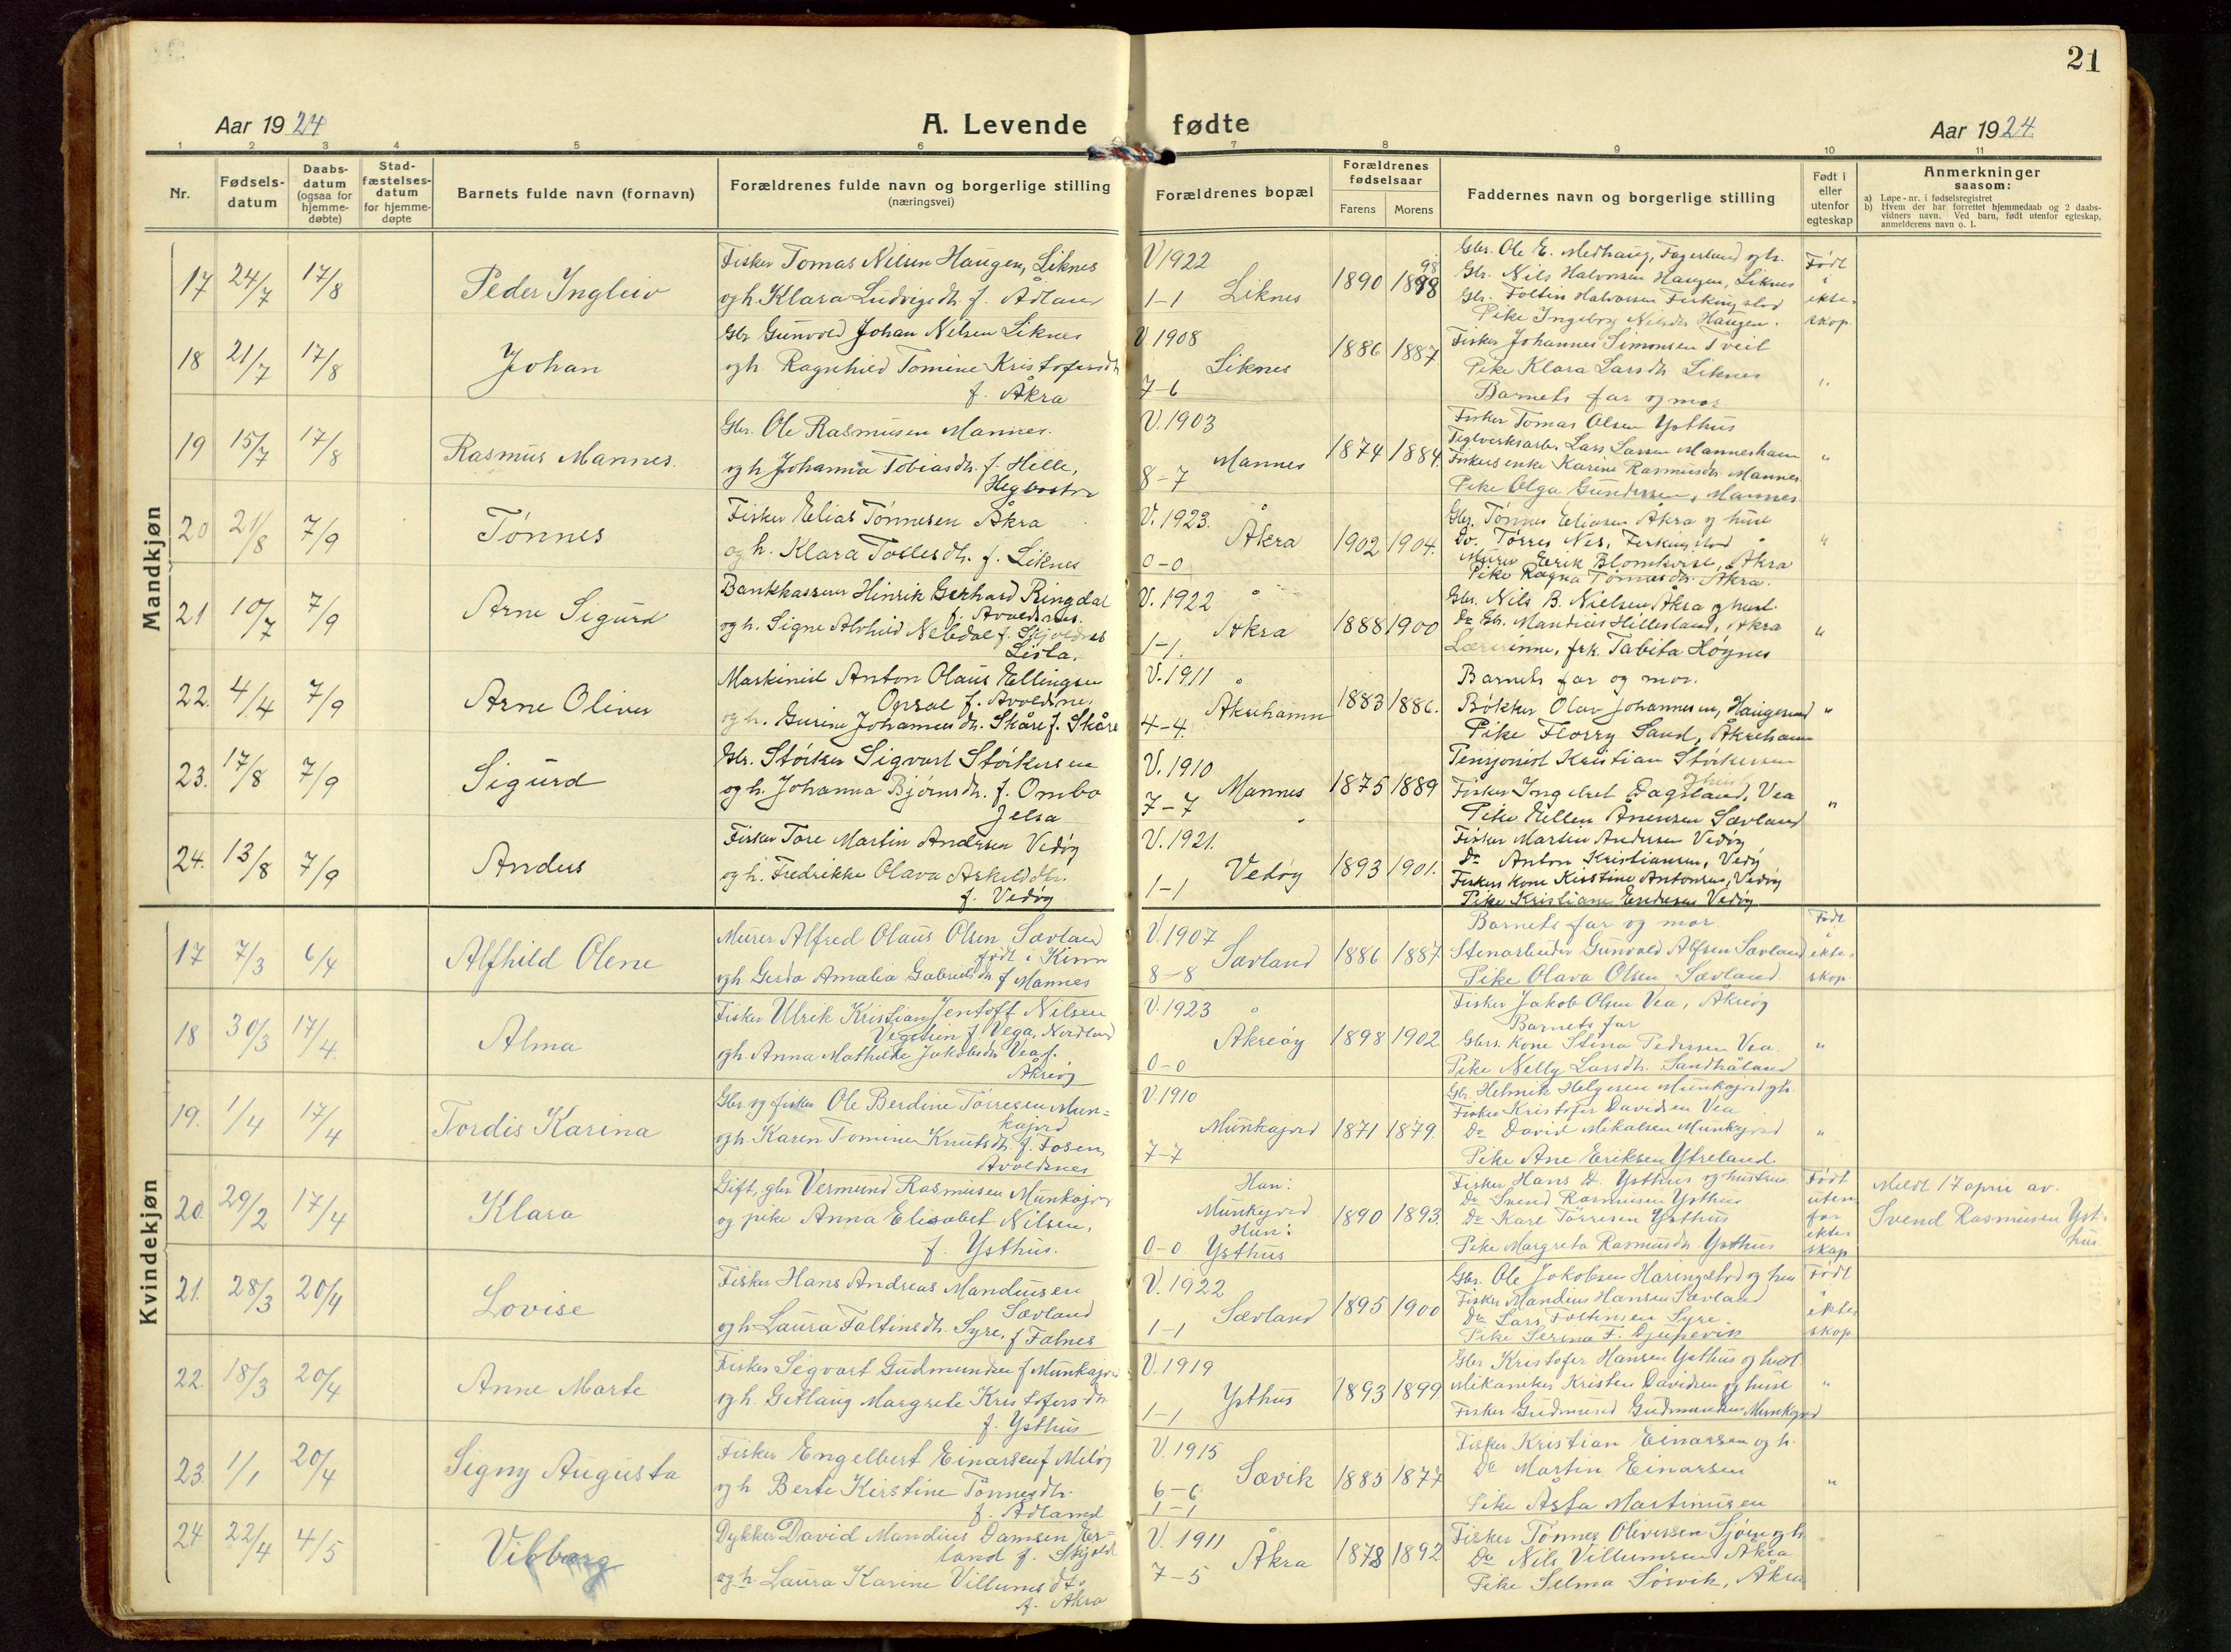 21
Aar 1924
A. Levende fødte
Aar 1924.
1 2 3 4 5 6 7 8 9 10 11
Nr.
Fødsels-
datum
Daabs-
datum
(ogsaa for
hjemme-
døbte)
Stad-
fæstelses-
datum
for hjemme-
døpte
Barnets fulde navn (fornavn)
Forældrenes fulde navn og borgerlige stilling
(næringsvei)
Forældrenes bopæl
Forældrenes
fødselsaar
Farens
Morens
Faddernes navn og borgerlige stilling
Født i
eller
utenfor
egteskap
Anmerkninger
saasom:
a) Løpe-nr. i fødselsregistret
b) Hvem der har forrettet hjemmedaab og 2 daabs-
vidners navn. Ved barn, født utenfor egteskap,
anmelderens navn o. l.
Mandkjøn
17 24/7 17/8 Peder Ingleiv
Fisker Tomas Nilsen Haugen, Liknes
og h. Klara Ludvigsdtr. f. Ådland
V 1922
1-1 Liknes 1890 1898
Gbr. Ole E. Medhaug, Fagerland og h.
Gbr. Nils Halvorsen Haugen, Liknes
Gbr. Foltin Halvorsen Ferkingstad
Pike Ingeborg Nilsdtr. Haugen.
Født
i
ekte-
skap.
18 21/7 17/8 Johan
Gbr Gunvald Johan Nilsen Liknes
og h Ragnhild Tomine Kristofersdtr
f. Åkra
V. 1908
Liknes
7-6 1886 1887
Fisker Johannes Simonsen Tveit
Pike Klara Larsdtr. Liknes
Barnets far og mor
"
19 15/7 17/8 Rasmus Mannes.
Gbr. Ole Rasmusen Mannes.
og h Johanna Tobiasdtr. f. Helle,
V. 1903
Mannes
8-7 1874 1884.
Fisker Tomas Olsen Ysthus
Teglverksarb. Lars Larsen Manneshavn
Fiskers enke Karine Rasmusdtr. Mannes
Pike Olga Gundersen, Mannes
"
20 21/8 7/9 Tønnes
Fisker Elias Tønnesen Åkra
og h. Klara Tollesdtr. f. Liknes
V. 1923.
Åkra
0-0 1902 1904.
Gbr. Tønnes Eliasen Åkra og hust
Do. Tørres Nes, Ferkingstad
Murer Erik Blomkvist, Åkra
Pike Ragna Tønnesdtr. Åkra.
"
21 10/7 7/9 Arne Sigurd
Bankkasserer Hinrik Gerhard Ringdal
f. Avaldsnes.
og h. Signe Alvhild Nebdal f. Skjoldnes
Lista.
V. 1922
Åkra
1-1. 1888 1900
Gbr. Nils B. Nielsen Åkra og hust.
Do Gbr. Mandius Hillesland, Åkra
Lærerinne, frk. Tabita Høynes
"
22. 4/4 7/9 Arne Oliver
Maskinist Anton Olaus Ellingsen
Opsal f. Avaldsnes,
og h. Gurine Johannesdtr. Skåre f. Skåre
V. 1911
Åkrehamn
4-4. 1883 1886.
Barnets far og mor.
Bøkker Olav Johannesen, Haugesund
Pike Florry Sand, Åkrehamn
"
23. 17/8 7/9 Sigurd
Gbr. Størker Sigvart Størkersen
og h. Johanna Bjørnsdtr. f. Ombo
Jelsa
V. 1910
Mannes
7-7 1875 1889
Pensjonist Kristian Størkersen
Fisker Ingebret Dagsland, Vea
Pike Ellen Anensen Sævland
"
24. 13/8 7/9 Anders
Fisker Tore Martin Andersen Vedøy
og h. Fredrikke Olava Askilddtr.
f. Vedøy
V. 1921.
Vedøy
1-1 1893 1901.
Fisker Martin Andersen Vedøy
Do Anton Kristiansen, Vedøy
Fiskers kone Kirstine Antonsen, Vedøy
Pike Kristiane Endresen Vedøy
Kvindekjøn
17 7/3 6/4 Alfhild Olene
Murer Alfred Olaus Olsen Sævland
født i Kinn
og h. Gerda Amalia Gabrielsdtr f Mannes
V. 1907
Sævland
8-8 1886 1887
Barnets far og mor.
Stenarbeider Gunvald Alfsen Sævland
Pike Olava Olsen Sævland
Født
i
ekte-
skap
18 30/3 17/4. Alma
Fisker Ulrik Kristian Jentoft Nilsen
Vegstein f. Vega, Nordland
og h. Anna Mathilde Jakobsdtr Vea f.
Åkreøy
V. 1923
Åkreøy
0-0 1898 1902
Fisker Jakob Olsen Vea, Åkreøy
Barnets far
Gbrs. kone Stina Pedersen Vea.
Pike Nelly Larsdtr. Sandhåland
"
19. 1/4 17/4 Tordis Karina
Gbr og fisker Ole Berdine Tørresen Mun-
kajord
og h. Karen Tomine Knutsdtr. f. Fosen,
Avaldsnes
V. 1910
Munkajord
7-7 1871 1879.
Gbr. Helmik Helgesen Munkajord og h.
Fisker Kristofer Davidsen Vea
Do David Mikalsen Munkejord
Pike Ane Eriksen Ytreland.
"
20. 29/2 17/4 Klara
Gift, gbr Vermund Rasmusen Munkajord
og pike Anna Elisabet Nilsen,
f. Ysthus.
Han:
Munkejord
Hun:
0-0 Ysthus 1890 1893.
Fisker Hans D. Ysthus og hustru
Do Svend Rasmusen Ysthus
Do Karl Tørresen Ysthus
Pike Margreta Rasmusdtr Ysthus
Født
uten
for
ekte-
skap
Meldt 17 april av.
Svend Rasmusen Yst-
hus
21. 28/3 20/4 Lovise
Fisker Hans Andreas Mandiusen
Sævland
og h. Laura Foltinsdtr. Syre, f Falnes
V. 1922
Sævland
1-1 1895 1900
Gbr. Ole Jakobsen Haringstad og hus
Fisker Mandius Hansen Sævland
Do Lars Foltinsen Syre.
Pike Serina F. Djupevik
Født
i
ekte-
skap
22. 18/3 20/4 Anne Marte
Fisker Segvart Gudmundsen f Munkajord
og h. Getlaug Margrete Kristofersdtr
f. Ysthus
V. 1919
Ysthus
1-1 1893 1899.
Gbr Kristofer Hansen Ysthus og hust
Mikaniker Kristen Davidsen og hust
Fisker Gudmund Gudmundsen Munkejord
"
23. 1/1 20/4 Signy Augusta
Fisker Engelbert Einarsen f Meløy
og h Berte Kirstine Tønnesdtr.
f. Ådland
V. 1915
Sævik
6-6
1-1 1885 1877
Fisker Kristian Einarsen og h.
Do Martin Einarsen
Pike Åsta Martinusen
"
24 22/4 4/5 Vibborg
Dykker David Mandius Damsen Eer-
land f. Skjold
og h. Laura Karine Villumsdtr
f. Åkra
V. 1911
Åkra
7-5 1878 1892
Fisker Tønnes Oliversen Sjøen og h
Do Nils Villumsen Åkra
Pike Selma Sørvik, Åkra